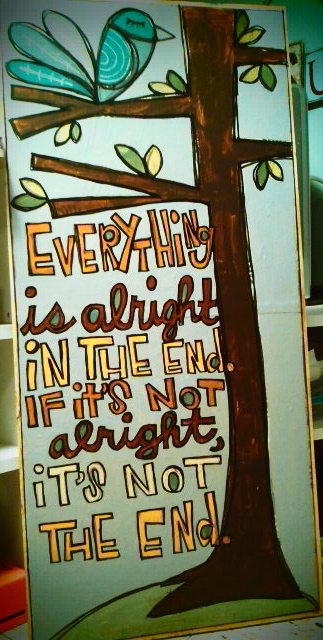 EVERYTHING
is alright
IN THE END.
IF iT'S NOT
alright,
iT'S NOT
THE END.